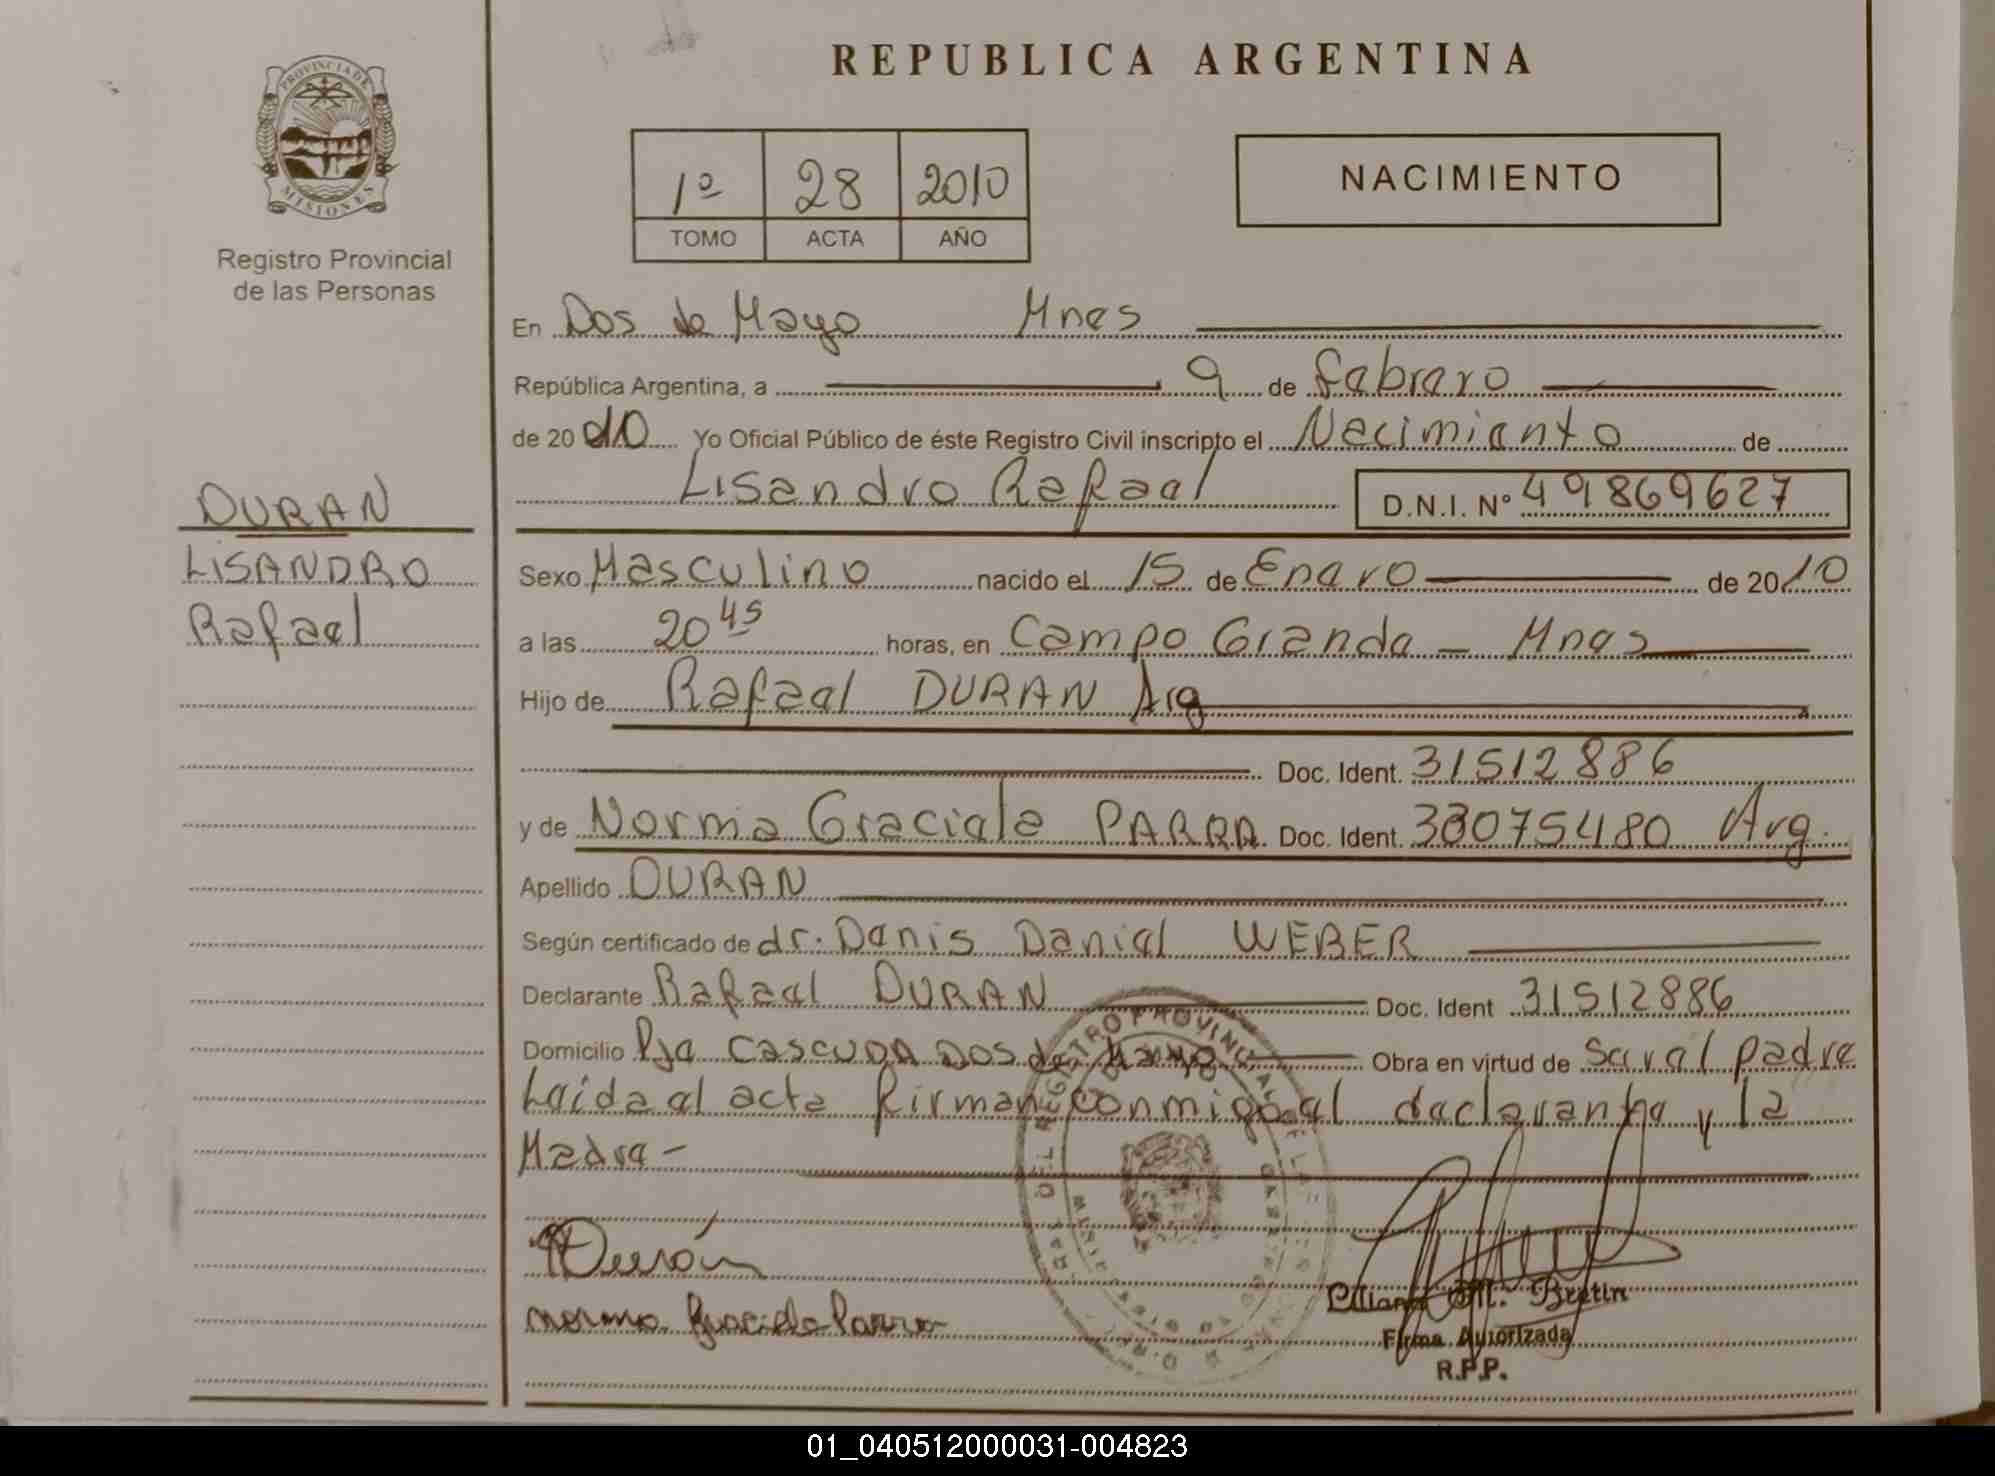 REPUBLICA ARGENTINA
PROVINCIA DE MISIONES
Registro Provincial
de las Personas
1º 28 2010
TOMO ACTA AÑO
NACIMIENTO
En Dos de Mayo Mnes
República Argentina, a 9 de febrero
de 20 010 Yo Oficial Público de éste Registro Civil inscripto el Nacimiento de
Lisandro Rafael D.N.I. Nº 49869627
DURAN
LISANDRO
Rafael
Sexo Masculino nacido el 15 de Enero de 2010
a las 20 45 horas, en Campo Grande - Mnes
Hijo de Rafael DURAN Arg
Doc. Ident. 31512886
y de Norma Graciela PARRA Doc. Ident. 33075480 Arg.
Apellido DURAN
Según certificado de dr. Denis Daniel WEBER
Declarante Rafael DURAN Doc. Ident 31512886
Domicilio Pje CASCUDA DOS de Mayo Obra en virtud de ser el padre
Leida el acta firman conmigo el declarante y la
Madre -
Durán
Norma Graciela Parra
Liliana M. Bretin
Firma Autorizada
R.P.P.
01_040512000031-004823